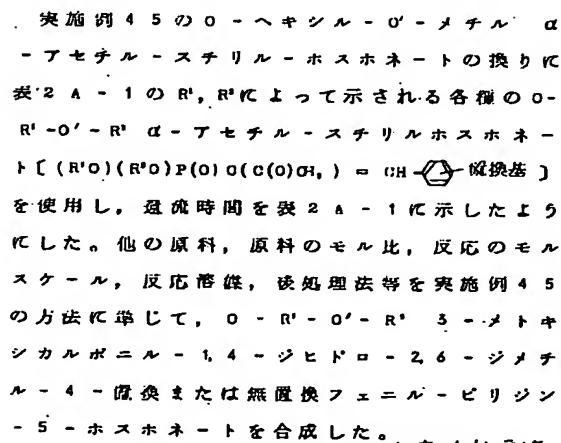 実施例45のO-ヘキシル-O'-メチル α
-アセチル-スチリル-ホスホネートの換りに
表2A-1のR¹,R²によって示される各種のO-
R¹-O'-R² α-アセチル-スチリルホスホネー
ト〔(R¹O)(R²O)P(O)C(C(O)CH₃)=CH-置換基〕
を使用し,還流時間を表2A-1に示したよう
にした。他の原料,原料のモル比,反応のモル
スケール,反応溶媒,後処理法等を実施例45
の方法に準じて,O-R¹-O'-R² 3-メトキ
シカルボニル-1,4-ジヒドロ-2,6-ジメチ
ル-4-置換または無置換フェニル-ピリジン
-5-ホスホネートを合成した。